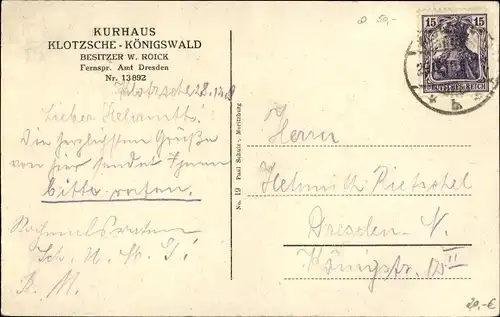 ∅ 50,-
KURHAUS
KLOTZSCHE - KÖNIGSWALD
BESITZER W. ROICK
Fernspr. Amt Dresden
Nr. 13892
15 15
DEUTSCHES REICH
Klotzsche
Lieber Helmuth!
Die herzlichsten Grüße
von hier sendet Ihnen
bitte raten.
Sch. U. M. G!
No. 19 Paul Schulz, Moritzburg
Herrn
Helmuth Rietschel
Dresden-N.
Königstr. II
20,-€